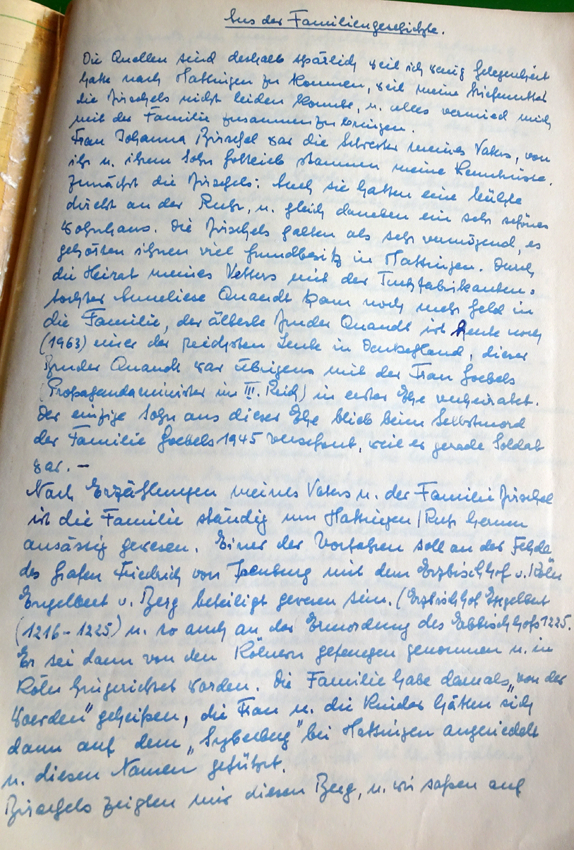 Aus der Familiengeschichte.
Die Quellen sind deshalb spärlich weil ich wenig Gelegenheit
hatte nach Hattingen zu kommen, weil meine Stiefmutter
die Birschels nicht leiden konnte, u. alles vermied mich
mit der Familie zusammen zu bringen.
Frau Johanna Birschel war die Schwester meines Vaters, von
ihr u. ihrem Sohn Gottlieb stammen meine Kenntnisse.
Zunächst die Birschels: Auch sie hatten eine Mühle
dicht an der Ruhr, u. gleich daneben ein sehr schönes
Wohnhaus. Die Birschels galten als sehr vermögend, es
gehörten ihnen viel Grundbesitz in Hattingen. Durch
die Heirat meines Vetters mit der Tuchfabrikanten-
tochter Anneliese Quandt kam noch mehr Geld in
die Familie, der älteste Bruder Quandt ist heute noch
(1963) einer der reichsten Leute in Deutschland, dieser
Bruder Quandt war übrigens mit der Frau Goebels
(Propagandaminister im III. Reich) in erster Ehe verheiratet.
Der einzige Sohn aus dieser Ehe blieb beim Selbstmord
der Familie Goebels 1945 verschont, weil er gerade Soldat
war. —
Nach Erzählungen meines Vaters u. der Familie Birschel
ist die Familie ständig um Hattingen/Ruhr herum
ansässig gewesen. Einer der Vorfahren soll an der Fehde
des Grafen Friedrich von Isenburg mit dem Erzbischhof v. Köln
Engelbert v. Berg beteiligt gewesen sein. (Erzbischof Engelbert
(1216-1225) u. so auch an der Ermordung des Erzbischofs 1225.
Er sei dann von den Kölnern gefangen genommen u. in
Köln hingerichtet worden. Die Familie habe damals "von der
Woerden" geheißen, die Frau u. die Kinder hätten sich
dann auf dem "Syberberg" bei Hattingen angesiedelt
u. diesen Namen geführt.
Birschels zeigten mir diesen Berg, u. wir saßen auf